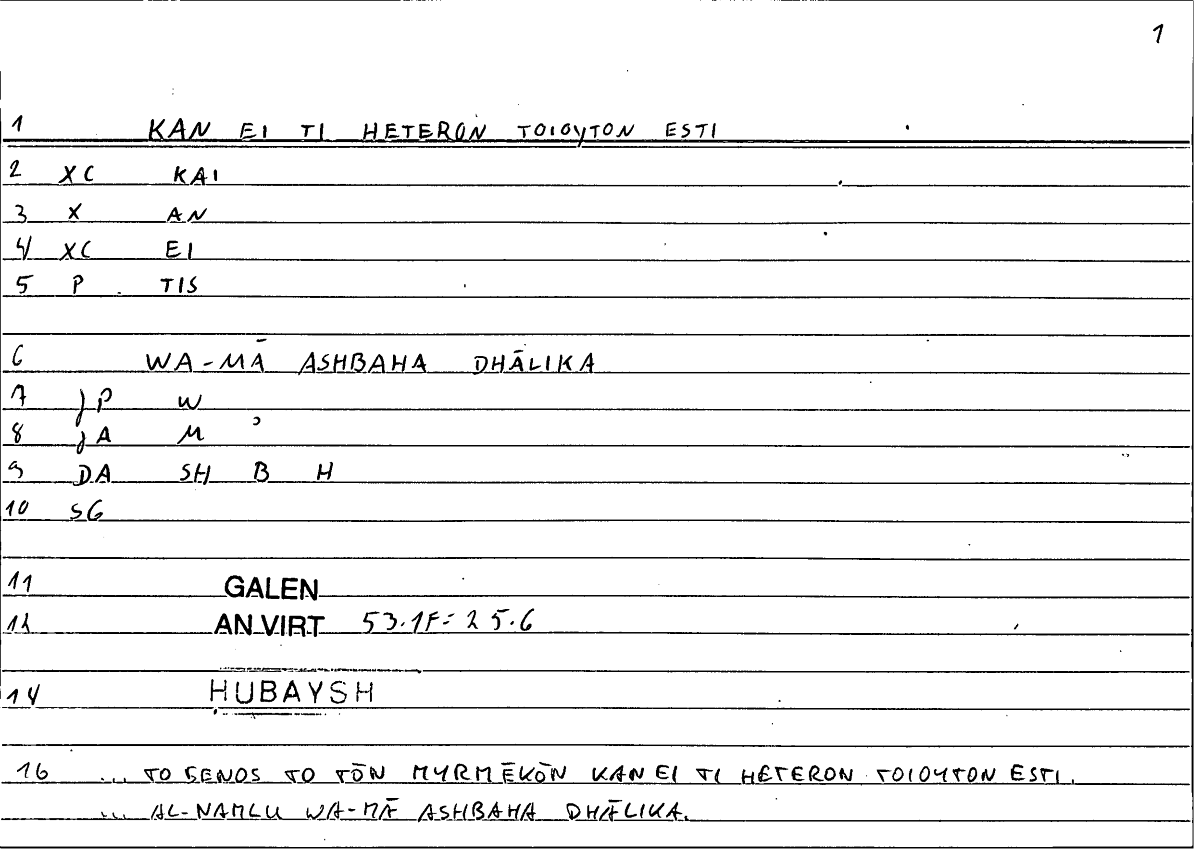 1
1 KAN EI TI HETERON TOIOYTON ESTI
2 XC KAI
3 X AN
4 XC EI
5 P TIS
6 WA-MĀ ASHBAHA DHĀLIKA
7 JP W
8 JA M ʾ
9 DA SH B H
10 SG
11 GALEN
12 AN VIRT 53.1F=25.6
14 HUBAYSH
16 ... TO GENOS TO TŌN MYRMĒKŌN KAN EI TI HETERON TOIOYTON ESTI.
... AL-NAMLU WA-MĀ ASHBAHA DHĀLIKA.